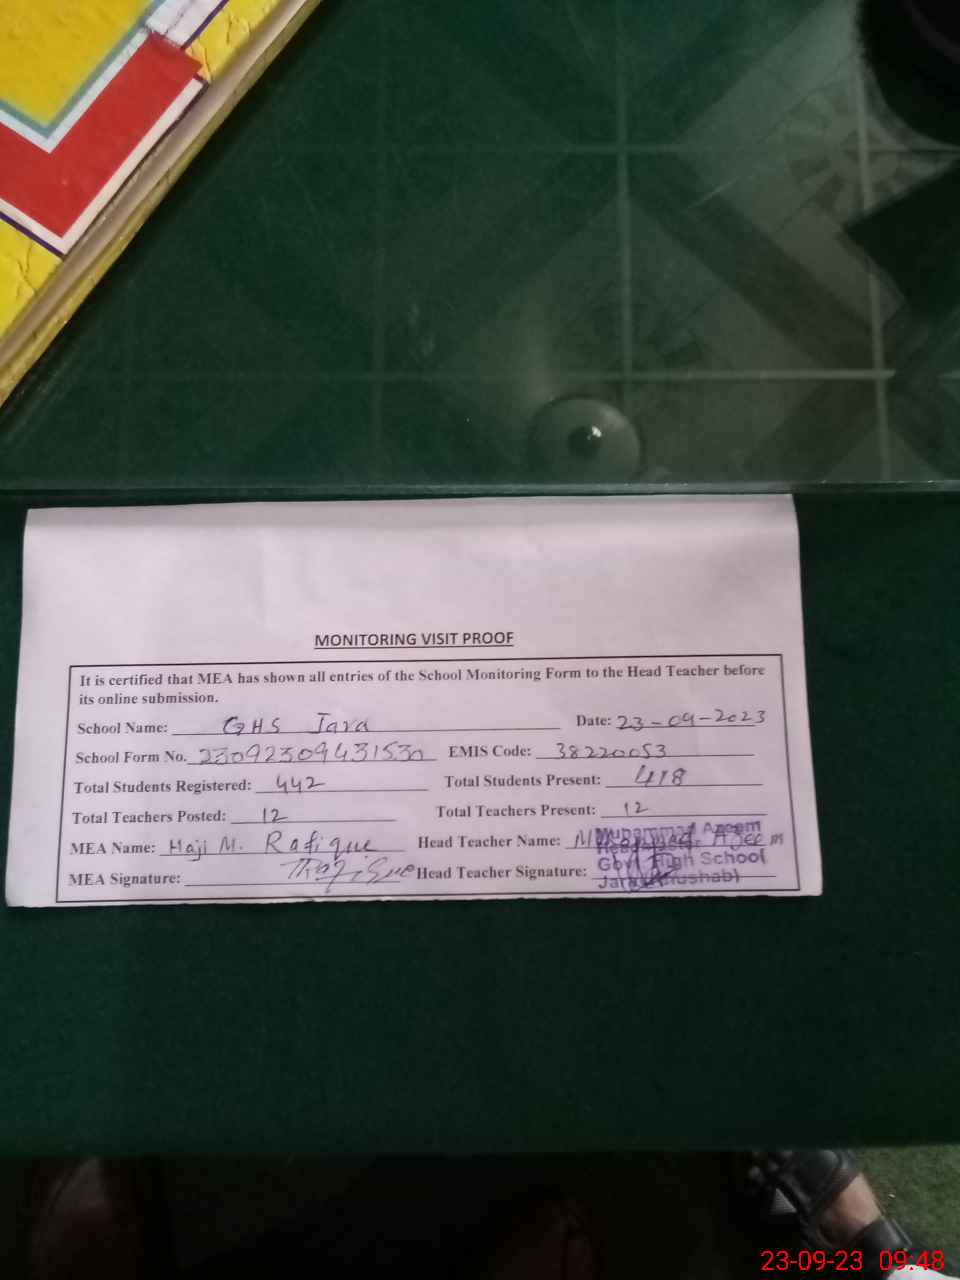 MONITORING VISIT PROOF
It is certified that MEA has shown all entries of the School Monitoring Form to the Head Teacher before
its online submission.
School Name: GHS Jara Date: 23-09-2023
School Form No. 23092309431530 EMIS Code: 38220053
Total Students Registered: 442 Total Students Present: 418
Total Teachers Posted: 12 Total Teachers Present: 12
MEA Name: Haji M. Rafique Head Teacher Name: Muhammad Azeem
MEA Signature: Rafique Head Teacher Signature:
Muhammad Azeem
Govt. High School
Jara
23-09-23 09:48